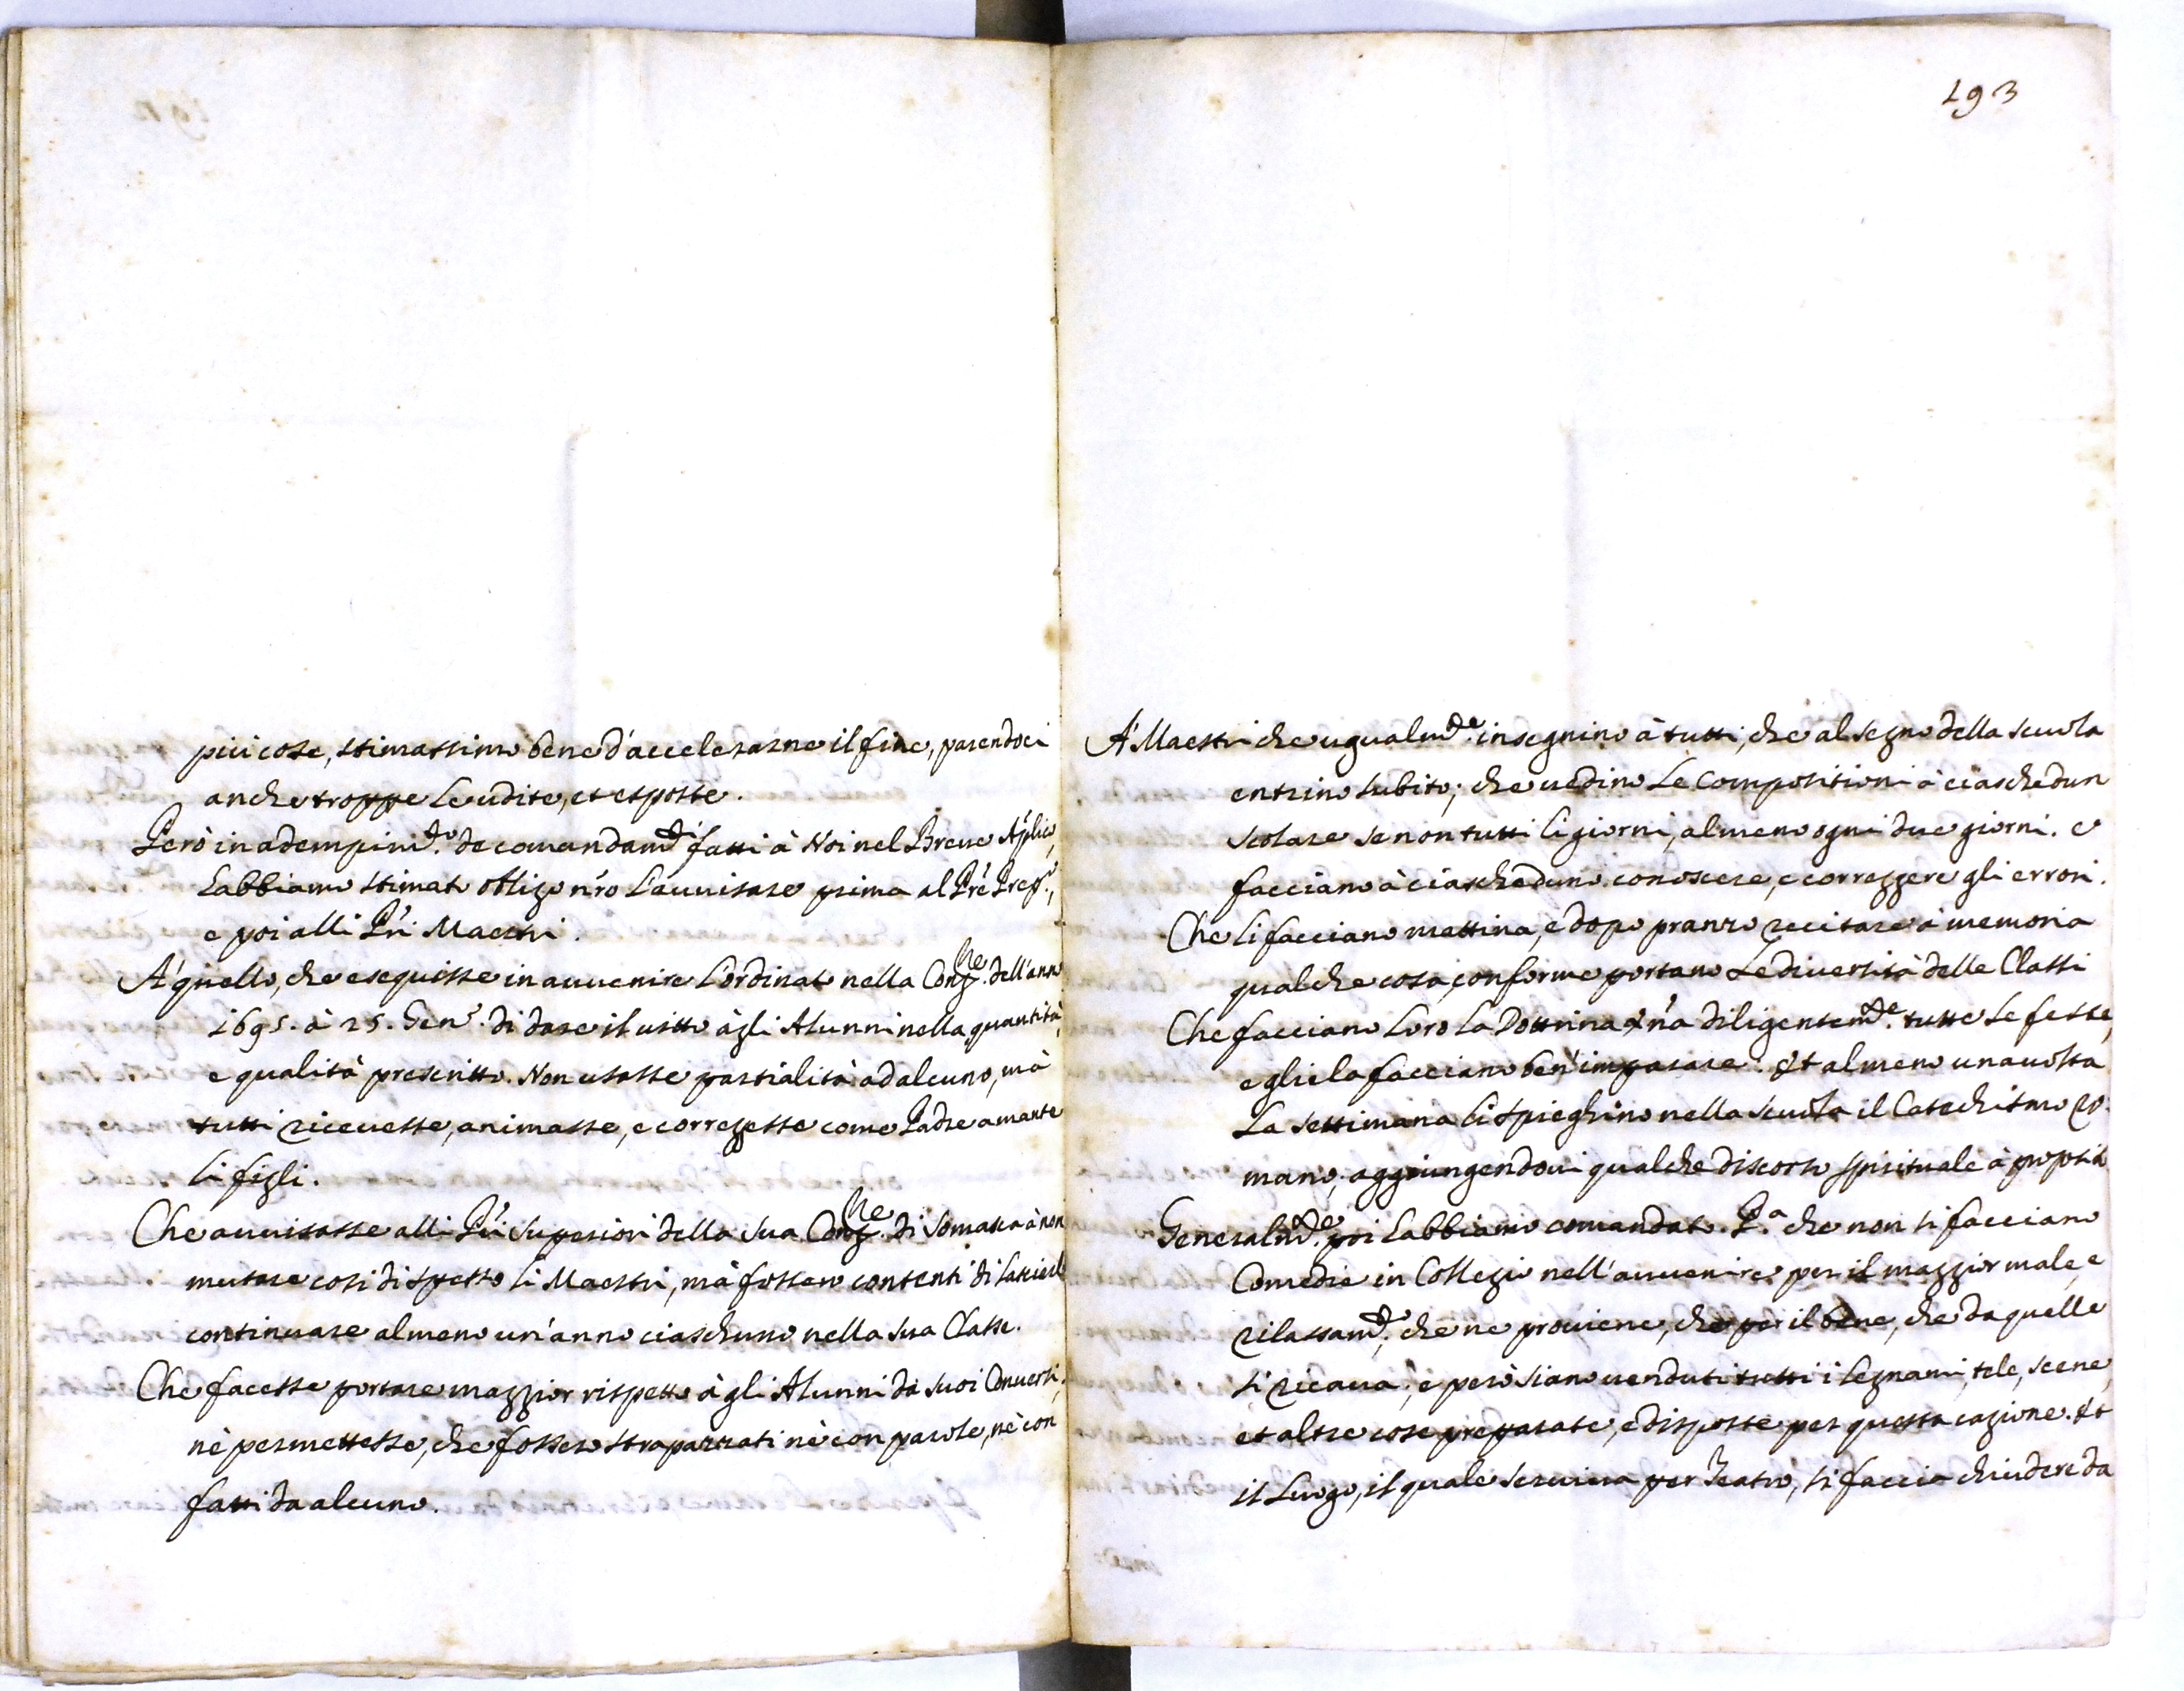 più cose, stimassimo bene d'accelerarne il fine, parendoci
anche troppe le udite, et esposte.
Però in adempim.to de comandam.ti fatti à Noi nel Breve Ap'lico,
habbiamo stimato obligo n'ro l'avvisare prima al P're Prep.to,
e poi alli P'ri Maestri.
A' quello, che eseguisse in avvenire l'ordinato nella Cong.ne dell'anno
1695. à 25. Gen.o di dare il vitto à gli Alunni nella quantità,
e qualità prescritto. Non usasse partialità ad alcuno, mà
tutti ricevesse, animasse, e correggesse come Padre amante
li figli.
Che avvisasse alli P'ri Superiori della sua Cong.ne di Somasca à non
mutare così di spesso li Maestri, mà fossero contenti di lasciarli
continuare almeno un'anno ciaschuno nella sua Classe.
Che facesse portare maggior rispetto à gli Alunni da suoi Conversi,
nè permettesse, che fossero strapazzati nè con parole, nè con
fatti da alcuno.
193
A' Maestri che ugualm.te insegnino à tutti, che al segno della scuola
entrino subito; che vedino le compositioni à ciaschedun
scolare se non tutti li giorni, almeno ogni due giorni. e
facciano à ciascheduno conoscere, e correggere gli errori.
Che li facciano mattina, e dopo pranzo recitare à memoria
qualche cosa, conforme portano le diversità delle Classi
Che facciano loro la Dottrina X'na diligentem.te tutte le feste,
e gliela facciano ben' imparare. Et almeno una volta
la settimana li spieghino nella scuola il Catechismo Ro-
mano, aggiungendovi qualche discorso spirituale à proposito
Generalm.te poi habbiamo comandato. P.a che non si facciano
Comedie in Collegio nell'avvenire per il maggior male, e
rilassam.to, che ne proviene, che per il bene, che da quelle
si ricava; e però siano venduti tutti i legnami, tele, scene,
et altre cose preparate, e disposte per questa cagione. Et
il Luogo, il quale serviva per Teatro, si faccia chiudere da